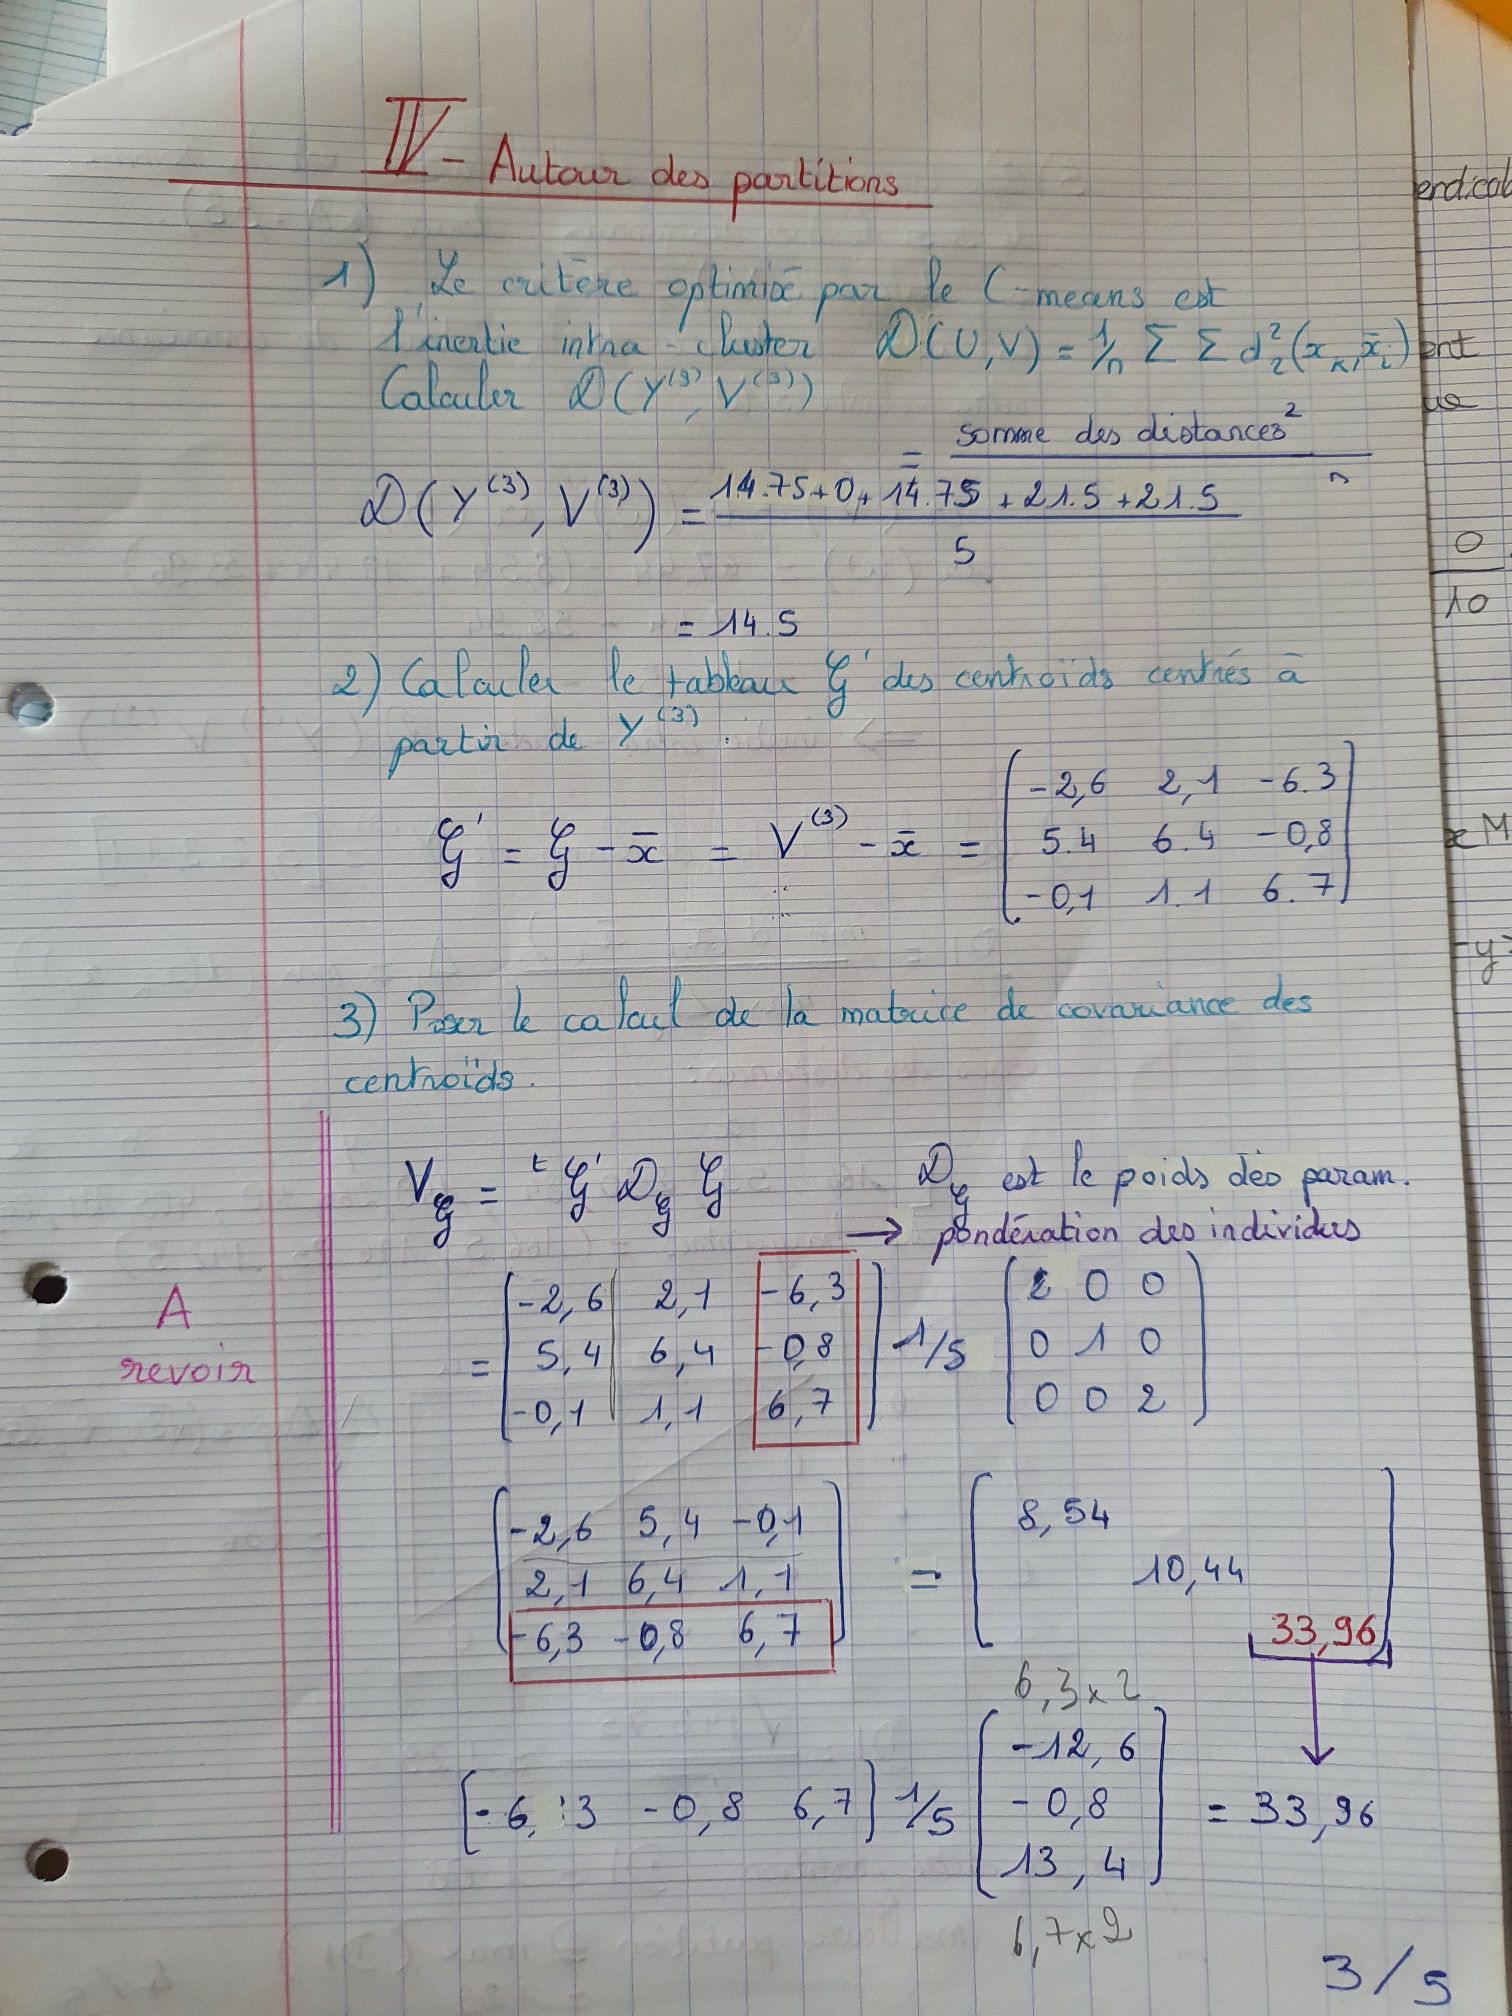 IV - Autour des partitions
1) Le critère optimisé par le C-means est
l'inertie intra-cluster D(U,V) = 1/n Σ Σ d₂²(xₖ, x̄ᵢ)
Calculer D(Y⁽³⁾, V⁽³⁾)
= somme des distances² / n
D(Y⁽³⁾, V⁽³⁾) = 14.75+0+14.75+21.5+21.5 / 5
= 14.5
2) Calculer le tableau G' des centroïds centrés à
partir de Y⁽³⁾.
G' = G - x̄ = V⁽³⁾ - x̄ = [-2,6 2,1 -6.3
5.4 6.4 -0,8
-0,1 1.1 6.7]
3) Poser le calcul de la matrice de covariance des
centroïds.
V_G = ᵗG' D_G G D_G est le poids des param.
→ pondération des individus
A revoir
= [-2,6 2,1 -6,3
5,4 6,4 -0,8
-0,1 1,1 6,7] 1/5 [2 0 0
0 1 0
0 0 2]
[-2,6 5,4 -0,1
2,1 6,4 1,1
-6,3 -0,8 6,7] = [8,54
10,44
33,96]
6,3x2
[-6,3 -0,8 6,7] 1/5 [-12,6
-0,8
13,4] = 33,96
6,7x2
3/5
endical
ent
ue
0
10
x M
-y